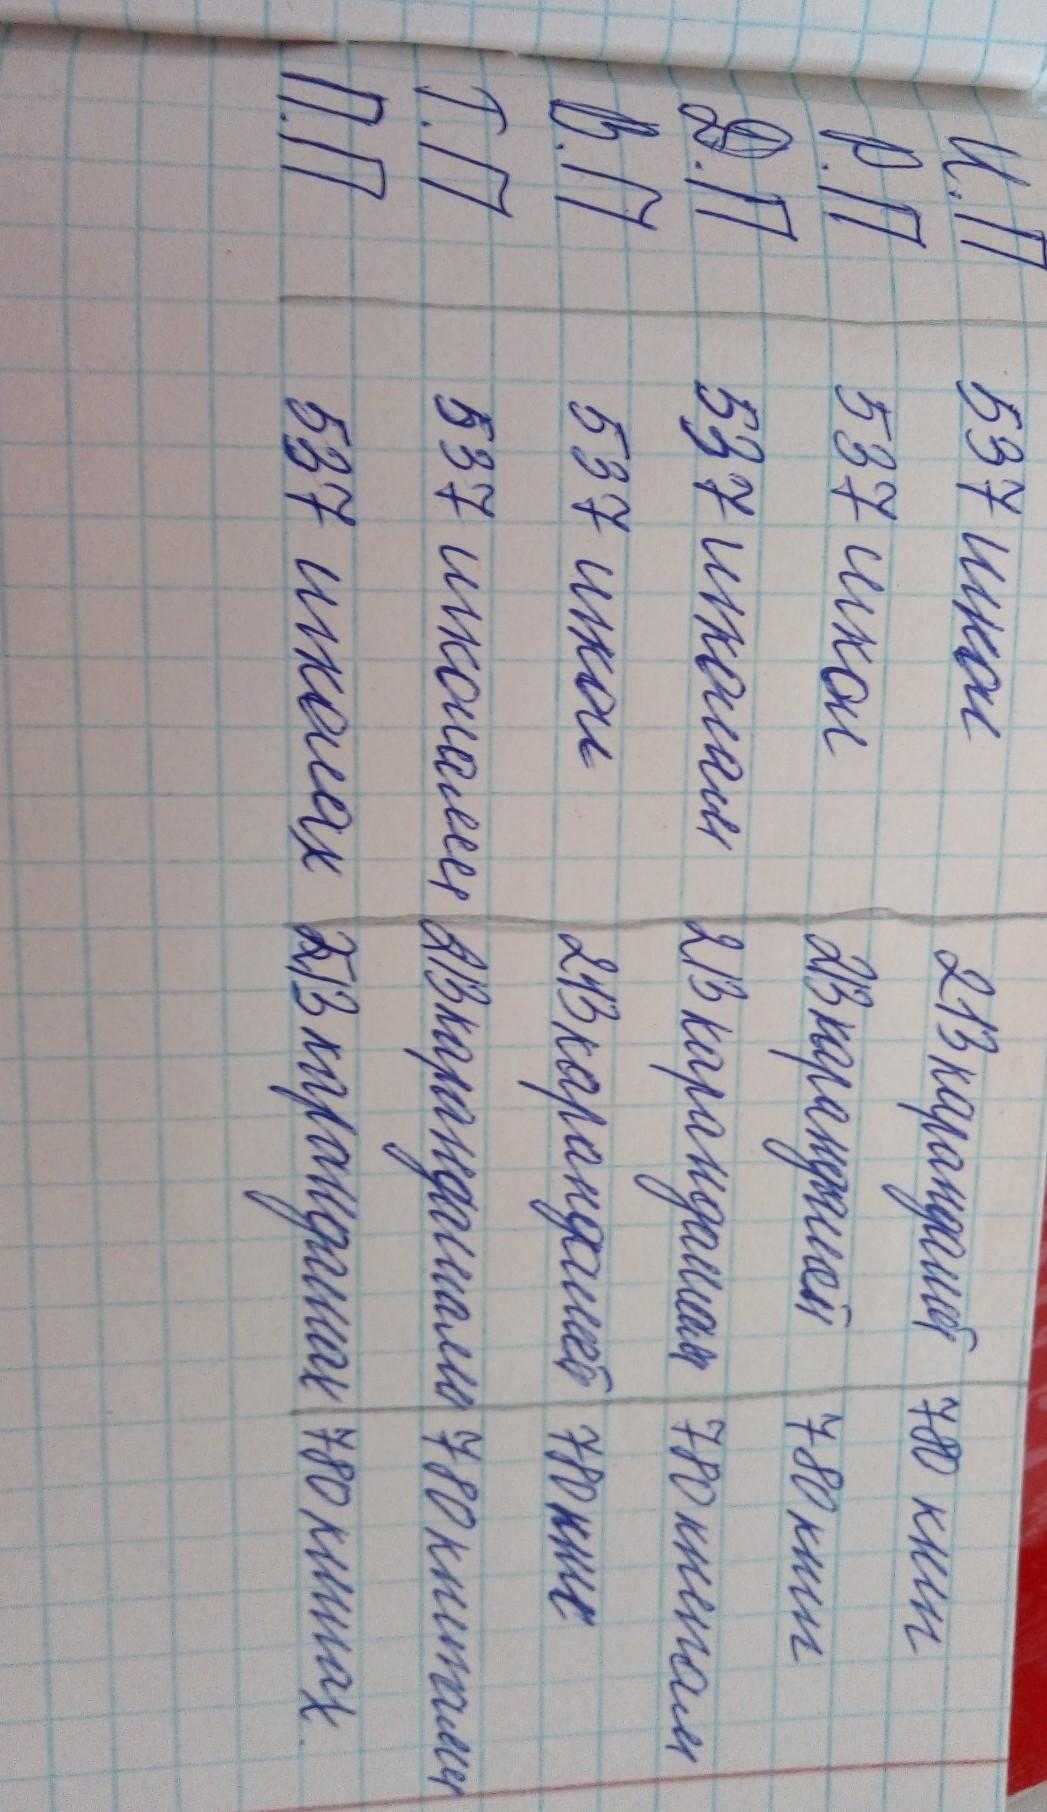 И.П 537 школ 213 карандашей 780 книг
Р.П 537 школ 213 карандашей 780 книг
Д.П 537 школам 213 карандашам 780 книгам
В.П 537 школ 213 карандашей 780 книг
Т.П 537 школами 213 карандашами 780 книгами
П.П 537 школах 213 карандашах 780 книгах.